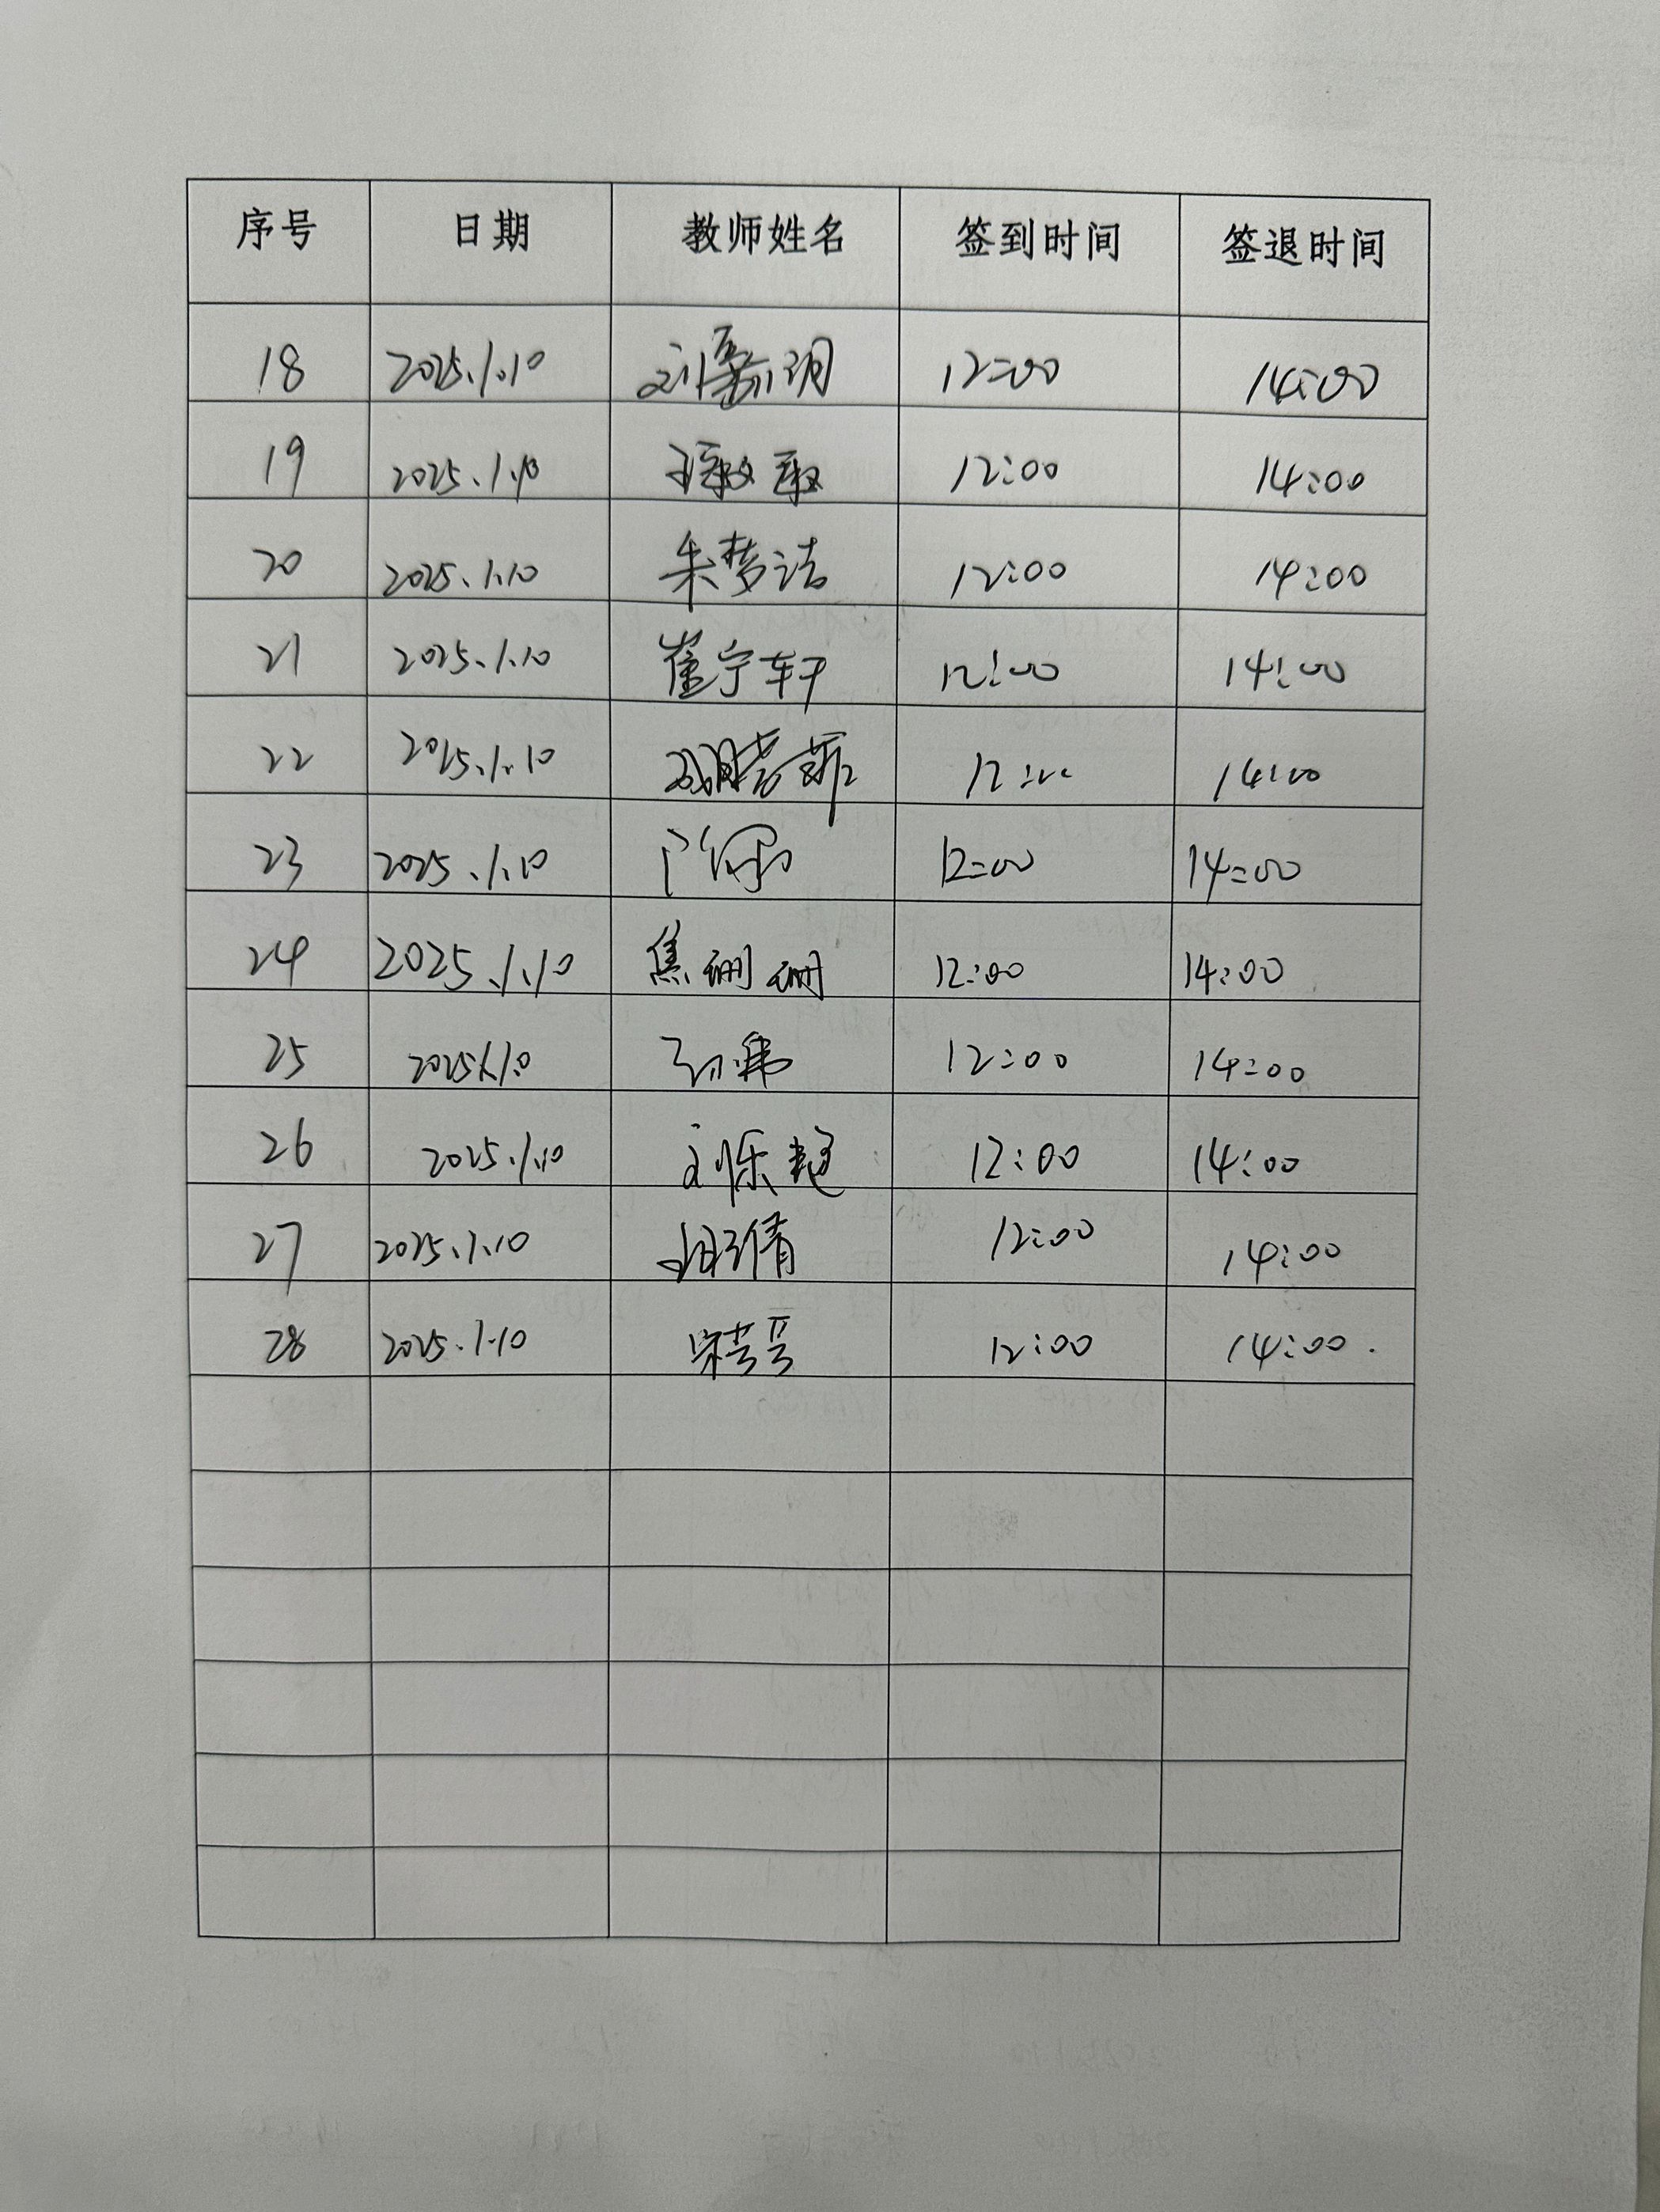 序号 日期 教师姓名 签到时间 签退时间
18 2025.1.10 刘嘉玥 12:00 14:00
19 2025.1.10 12:00 14:00
20 2025.1.10 朱梦洁 12:00 14:00
21 2025.1.10 崔宁轩 12:00 14:00
22 2025.1.10 12:00 14:00
23 2025.1.10 12:00 14:00
24 2025.1.10 焦珊珊 12:00 14:00
25 2025.1.10 12:00 14:00
26 2025.1.10 刘乐 12:00 14:00
27 2025.1.10 倩 12:00 14:00
28 2025.1.10 宋芸芸 12:00 14:00.